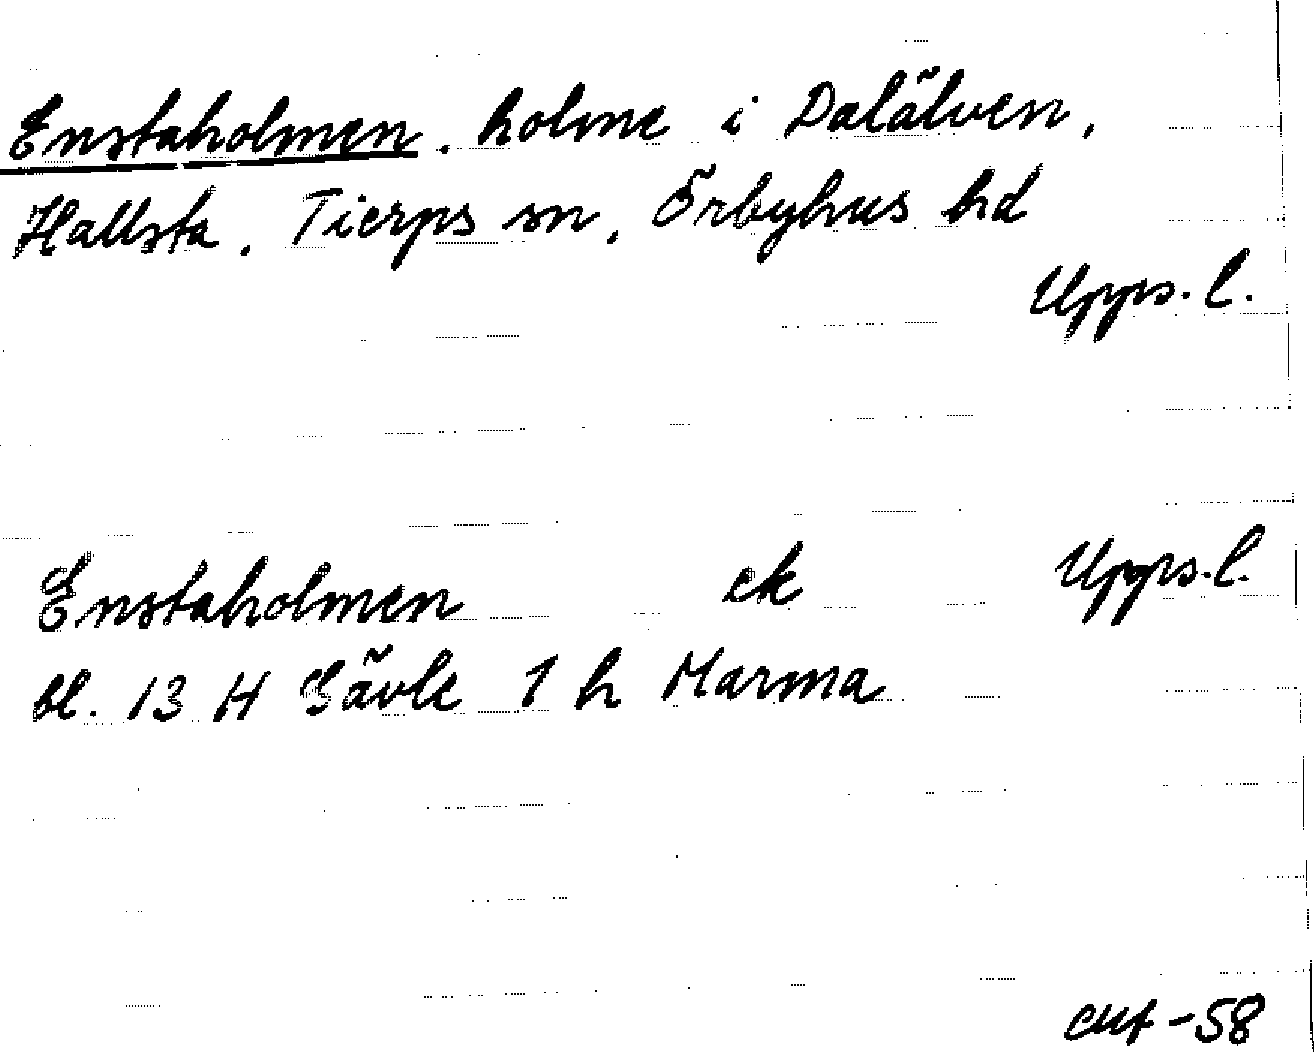 Enstaholmen, holme i Dalälven,
Hallsta, Tierps sn, Örbyhus hd
Upps. l.
Enstaholmen ek Upps. l.
bl. 13 H Gävle 1 h Marma
-58